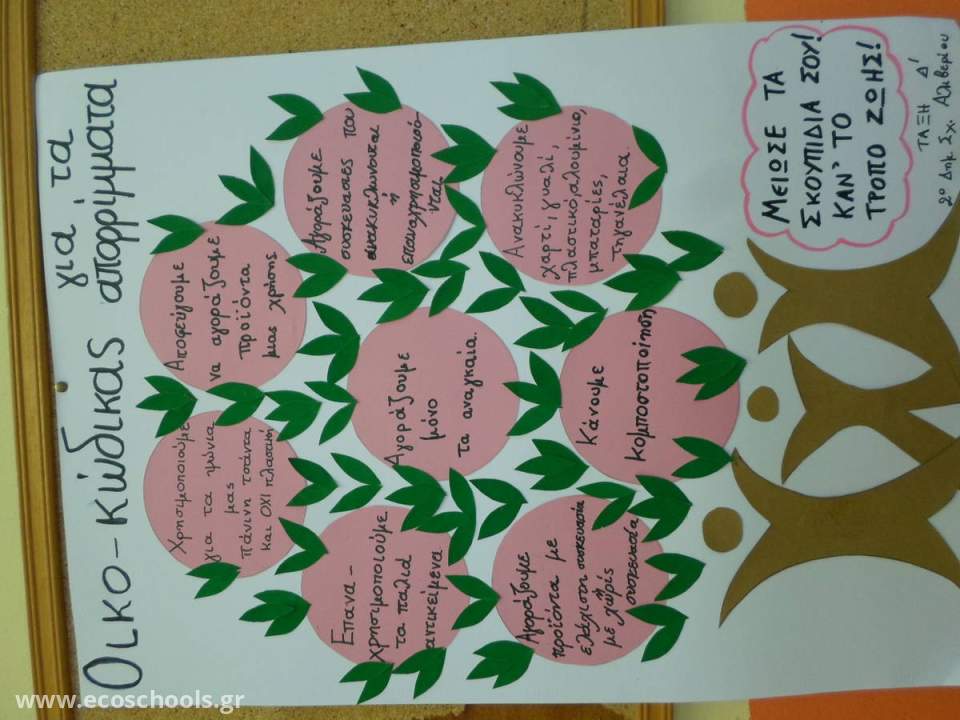 Οικο-κώδικας για τα
απορρίμματα
Χρησιμοποιούμε
για τα ψώνια
μας
πάνινη τσάντα
και ΟΧΙ πλαστική
Αποφεύγουμε
να αγοράζουμε
προϊόντα
μιας χρήσης
Αγοράζουμε
συσκευασίες που
ανακυκλώνονται
ή
επαναχρησιμοποιού-
νται
Επανα-
χρησιμοποιούμε
τα παλιά
αντικείμενα
Αγοράζουμε
μόνο
τα αναγκαία.
Ανακυκλώνουμε
χαρτί, γυαλί,
πλαστικό, αλουμίνιο,
μπαταρίες,
τηγανέλαια.
Αγοράζουμε
προϊόντα με
ελάχιστη συσκευασία
ή
με χωρίς
συσκευασία
Κάνουμε
κομποστοποίηση
ΜΕΙΩΣΕ ΤΑ
ΣΚΟΥΠΙΔΙΑ ΣΟΥ!
ΚΑΝ' ΤΟ
ΤΡΟΠΟ ΖΩΗΣ!
ΤΑΞΗ Δ'
2ο Δημ. Σχ. Αλιβερίου
www.ecoschools.gr